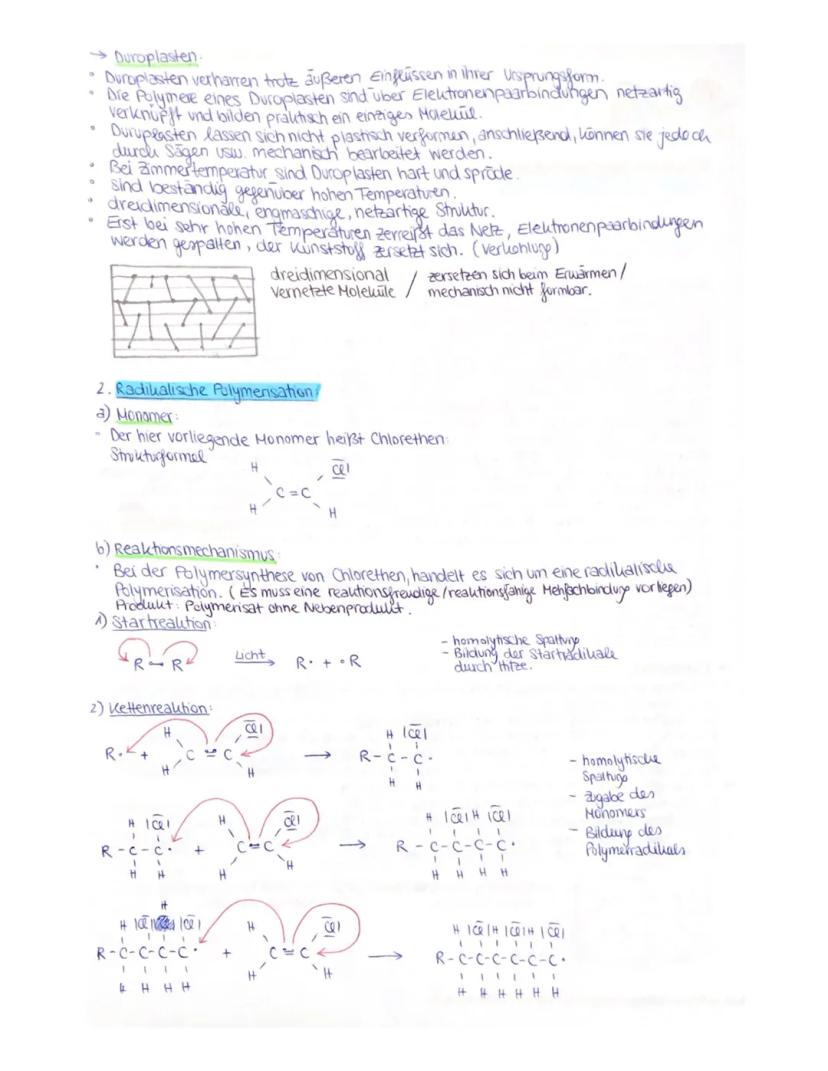 → Duroplasten:
• Duroplasten verharren trotz äußeren Einflüssen in ihrer Ursprungsform.
• Die Polymere eines Duroplasten sind über Elektronenpaarbindungen netzartig
verknüpft und bilden praktisch ein einziges Molekül.
• Duroplasten lassen sich nicht plastisch verformen, anschließend, können sie jedoch
durch Sägen usw. mechanisch bearbeitet werden.
• Bei Zimmertemperatur sind Duroplasten hart und spröde.
• sind beständig gegenüber hohen Temperaturen.
• dreidimensionale, engmaschige, netzartige Struktur.
• Erst bei sehr hohen Temperaturen zerreißt das Netz, Elektronenpaarbindungen
werden gespalten, der Kunststoff zersetzt sich. (Verkohlung)
dreidimensional / zersetzen sich beim Erwärmen /
vernetzte Moleküle / mechanisch nicht formbar.
2. Radikalische Polymerisation:
a) Monomer:
- Der hier vorliegende Monomer heißt Chlorethen:
Strukturformel
H Cl
C=C
H H
b) Reaktionsmechanismus:
• Bei der Polymersynthese von Chlorethen, handelt es sich um eine radikalische
Polymerisation. (Es muss eine reaktionsfreudige/reaktionsfähige Mehrfachbindung vorliegen)
Produkt: Polymerisat ohne Nebenprodukt.
1) Startreaktion:
R-R Licht → R· + ·R
- homolytische Spaltung
- Bildung der Startradikale
durch Hitze.
2) Kettenreaktion:
H Cl H |Cl|
R· + C=C → R-C-C·
H H H H
- homolytische
Spaltung
- Zugabe des
Monomers
- Bildung des
Polymerradikals
H |Cl| H Cl H |Cl| H |Cl|
R-C-C· + C=C → R-C-C-C-C·
H H H H H H H H
H
H |Cl| |Cl| H Cl H |Cl| H |Cl| H |Cl|
R-C-C-C-C· + C=C → R-C-C-C-C-C-C·
H H H H H H H H H H H H